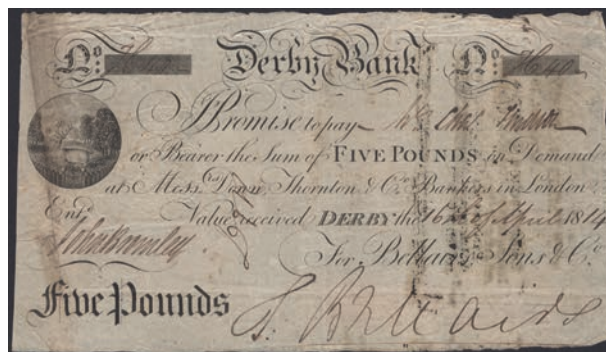 No. Derby Bank No. 
I Promise to pay Mr. Chas.
or Bearer the Sum of FIVE POUNDS on Demand
at Messrs. Down Thornton & Co. Bankers in London
Entd. Value received DERBY the 16th of April 1814
For Bellairs Sons & Co.
Five Pounds